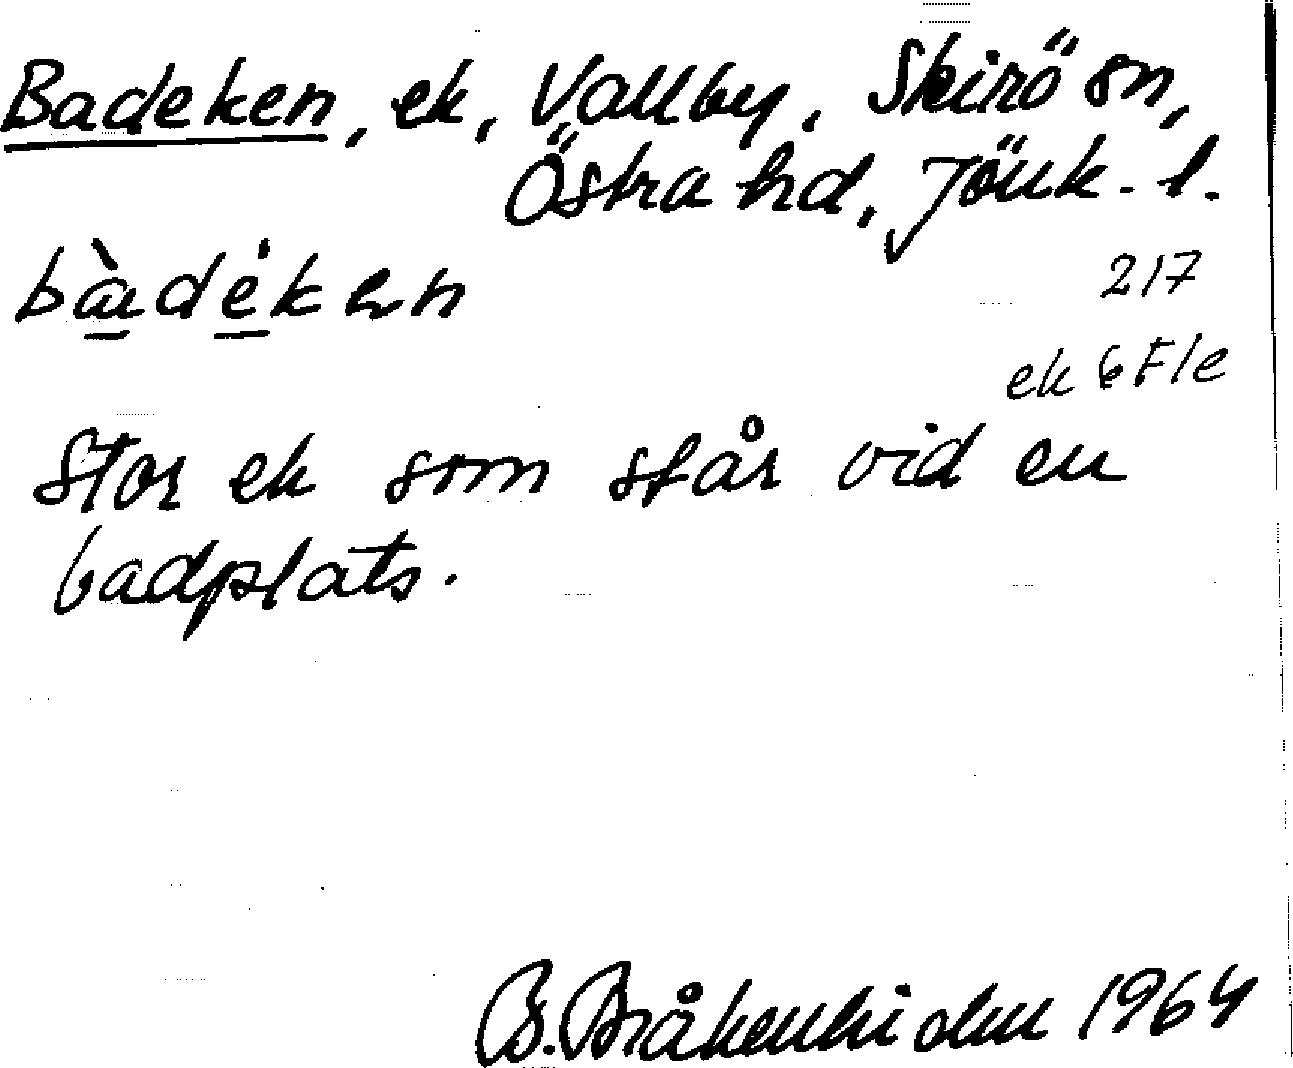 Badeken, ek, Vallby, Skirö sn,
Östra hd, Jönk. l.
bàdéken
217
ek 6F1e
Stor ek som står vid en
badplats.
B. 1964